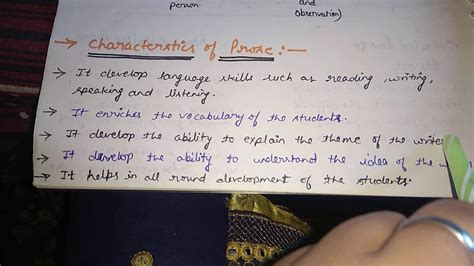 person.
and
Observation)
→ Characterstics of Prose :—
→ It develop language skills such as reading, writing,
speaking and listening.
→ It enriches the vocabulary of the students.
→ It develop the ability to explain the theme of the write
→ It develop the ability to understand the idea of the w
→ It helps in all round development of the students.